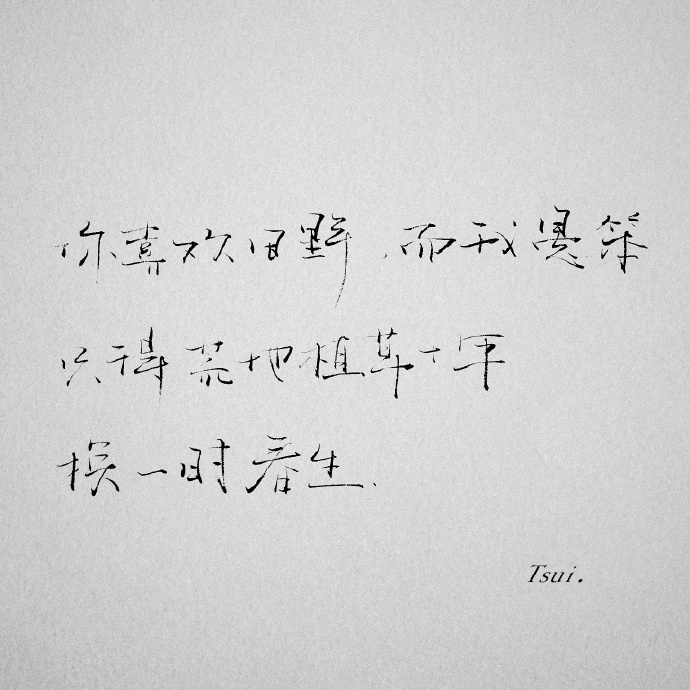 你喜欢田野，而我愚笨
只得荒地植草十年
换一时春生.
Tsui.